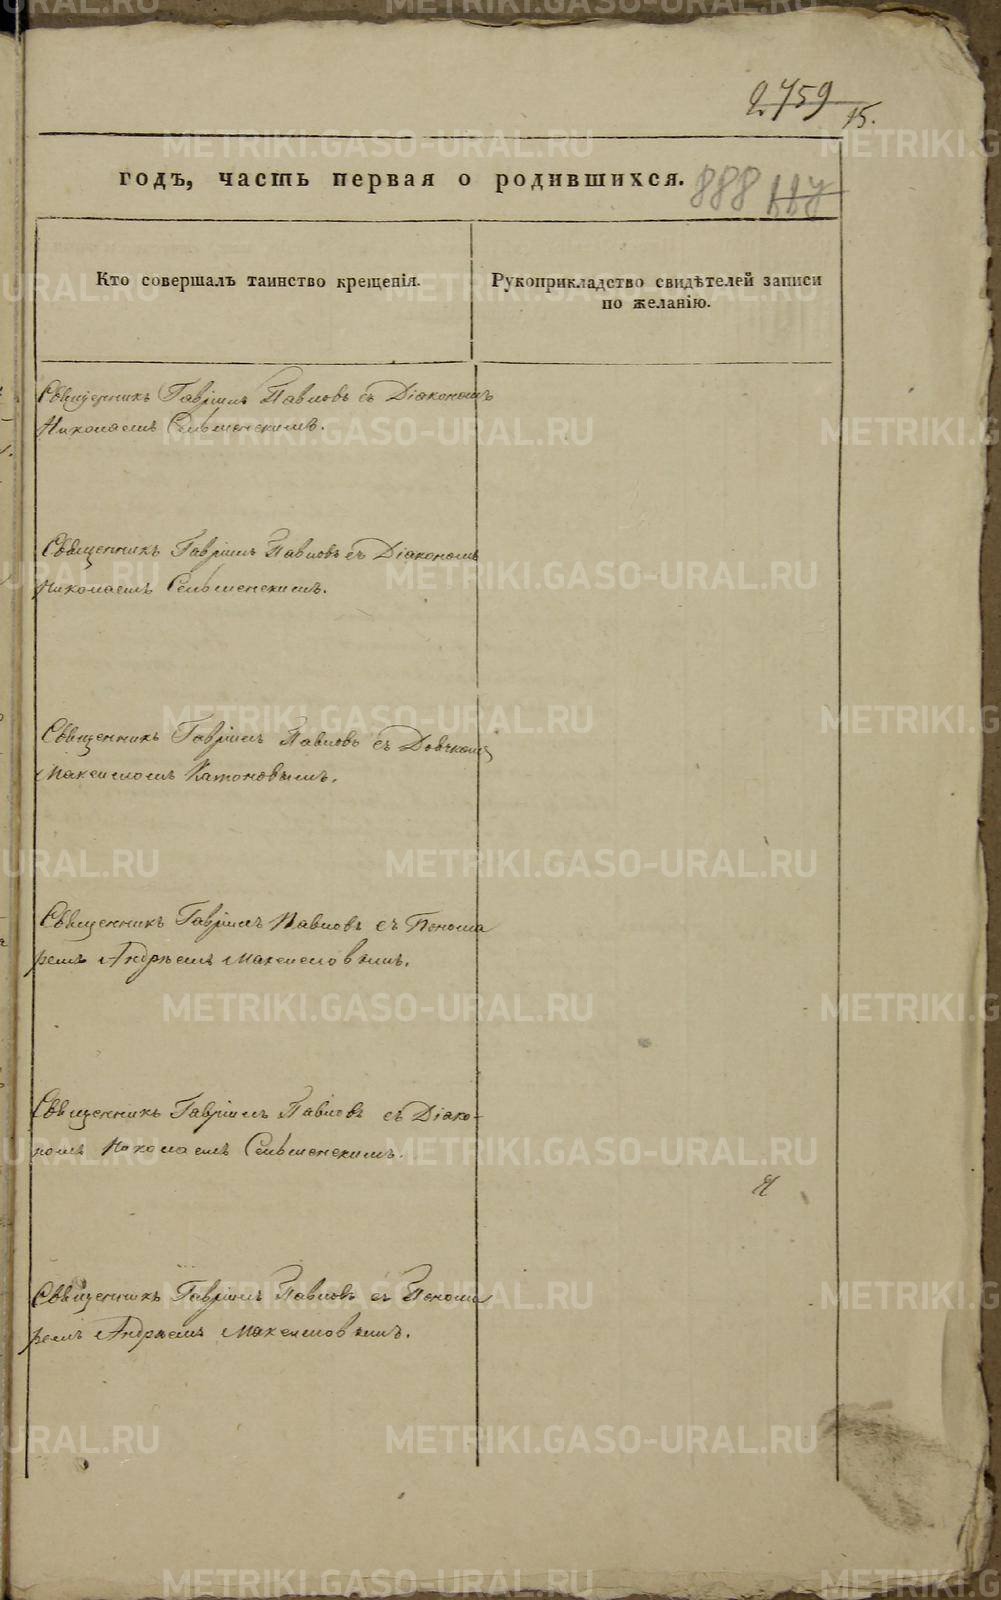 2759
15.
годъ, часть первая о родившихся. 888
Кто совершалъ таинство крещенія.
Рукоприкладство свидѣтелей записи
по желанію.
Священникъ Гавріилъ Павловъ съ Діакономъ
Николаемъ Сельменскимъ.
Священникъ Гавріилъ Павловъ съ Діакономъ
Николаемъ Сельменскимъ.
Священникъ Гавріилъ Павловъ съ Дьячкомъ
Максимомъ
Священникъ Гавріилъ Павловъ съ Понома
ремъ Андреемъ Максимовымъ.
Священникъ Гавріилъ Павловъ съ Діако-
номъ Николаемъ Сельменскимъ.
Священникъ Гавріилъ Павловъ съ Понома
ремъ Андреемъ Максимовымъ.
METRIKI.GASO-URAL.RU